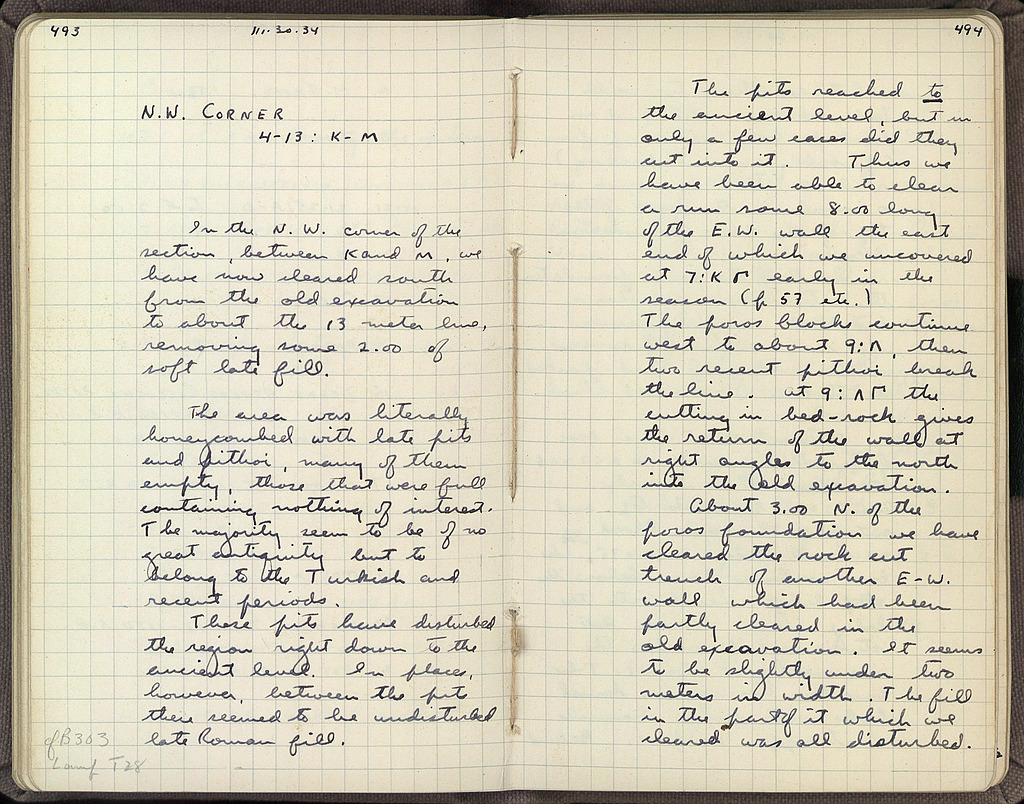 493
111.30.34
N.W. CORNER
4-13: K-M
In the N.W. corner of the
section, between K and M, we
have now cleared south
from the old excavation
to about the 13 meter line,
removing some 2.00 of
soft late fill.
The area was literally
honeycombed with late pits
and pithoi, many of them
empty, those that were full
containing nothing of interest.
The majority seem to be of no
great antiquity but to
belong to the Turkish and
recent periods.
These pits have disturbed
the region right down to the
ancient level. In places,
however, between the pits
there seemed to be undisturbed
late Roman fill.
cf B303
Lamp T28
494
The pits reached to
the ancient level, but in
only a few cases did they
cut into it. Thus we
have been able to clear
a run some 8.00 long
of the E.W. wall the east
end of which we uncovered
at 7:ΚΓ early in the
season (p 57 etc.)
The poros blocks continue
west to about 9:Λ, then
two recent pithoi break
the line. at 9:ΛΓ the
cutting in bed-rock gives
the return of the wall at
right angles to the north
into the old excavation.
About 3.00 N. of the
poros foundation we have
cleared the rock cut
trench of another E-W.
wall which had been
partly cleared in the
old excavation. It seems
to be slightly under two
meters in width. The fill
in the part of it which we
cleared was all disturbed.